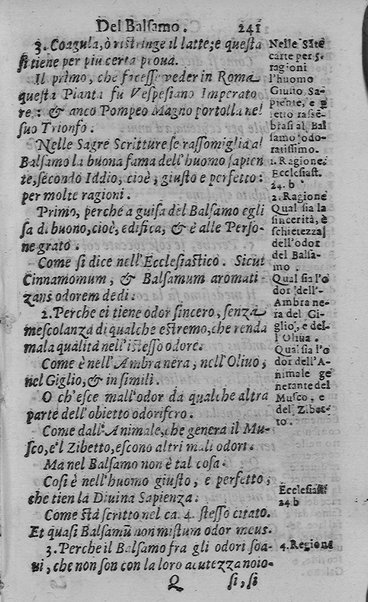 Del Balsamo. 241
3. Coagula, ò ristringe il latte; e questa
si tiene per piu certa proua.
Il primo, che facesse veder in Roma
questa Pianta fu Vespesiano Imperato
re: & anco Pompeo Magno portolla nel
suo Trionfo.
Nelle Sagre Scritture se rassomiglia al
Balsamo la buona fama dell'huomo sapien
te, secondo Iddio, cioè, giusto e perfetto:
per molte ragioni.
Primo, perche a guisa del Balsamo egli
sa di buono, cioè, edifica, & è alle Perso
ne grato.
Come si dice nell'Ecclesiastico. Sicut
Cinnamomum, & Balsamum aromati-
zans odorem dedi.
2. Perche ci tiene odor sincero, senza
mescolanza di qualche estremo, che renda
mala qualità nell'istesso odore.
Come è nell'Ambra nera, nell'Oliuo,
nel Giglio, & in simili.
O ch'esce mall'odor da qualche altra
parte dell'obietto odorifero.
Come dall'Animale, che genera il Mu-
sco, e'l Zibetto, escono altri mali odori.
Ma nel Balsamo non è tal cosa.
Cosi è nell'huomo giusto, e perfetto,
che tien la Diuina Sapienza.
Come stà scritto nel ca. 4. stesso citato.
Et quasi Balsamū non mistum odor meus.
3. Perche il Balsamo fra gli odori soa-
ui, che non son con la loro acutezza noio-
Q si, si
Nelle Sāte
carte per 5.
ragioni
l'huomo
Giusto, Sa-
piente, e
perfetto
rasse-
brasi al Bal
samo odo-
ratissimo.
1. Ragione.
Ecclesiast.
24. b
2. Ragione
Qual sia la
sincerità, è
schietezza
dell'odor
del Balsa-
mo.
Qual sia l'o
dor dell'-
Ambra ne-
ra del Gi-
glio, e del-
l'Oliua.
Qual sia l'o
dor dell'A-
nimale ge
nerante del
Musco, e
del Zibet-
to.
Ecclesiast.
24 b
4. Regione